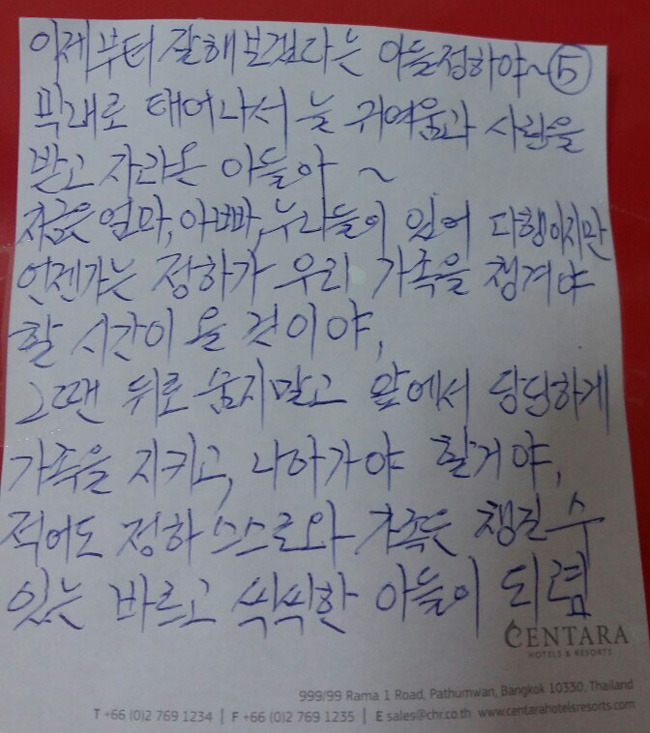 이제부터 잘해보겠다는 아들정하야~⑤
막내로 태어나서 늘 귀여움과 사랑을
받고 자라온 아들아 ~
지금은 엄마, 아빠, 누나들이 있어 다행이지만
언젠가는 정하가 우리 가족을 챙겨야
할 시간이 올 것이야,
그땐 뒤로 숨지말고 앞에서 당당하게
가족을 지키고, 나아가야 할거야,
적어도 정하 스스로와 가족은 챙길 수
있는 바르고 씩씩한 아들이 되렴
CENTARA
HOTELS & RESORTS
999/99 Rama 1 Road, Pathumwan, Bangkok 10330, Thailand
T +66 (0)2 769 1234 | F +66 (0)2 769 1235 | E sales@chr.co.th www.centarahotelsresorts.com